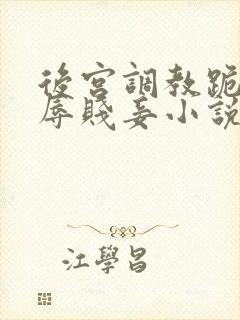 後宮調教跪
辱賤妾小說
江學昌